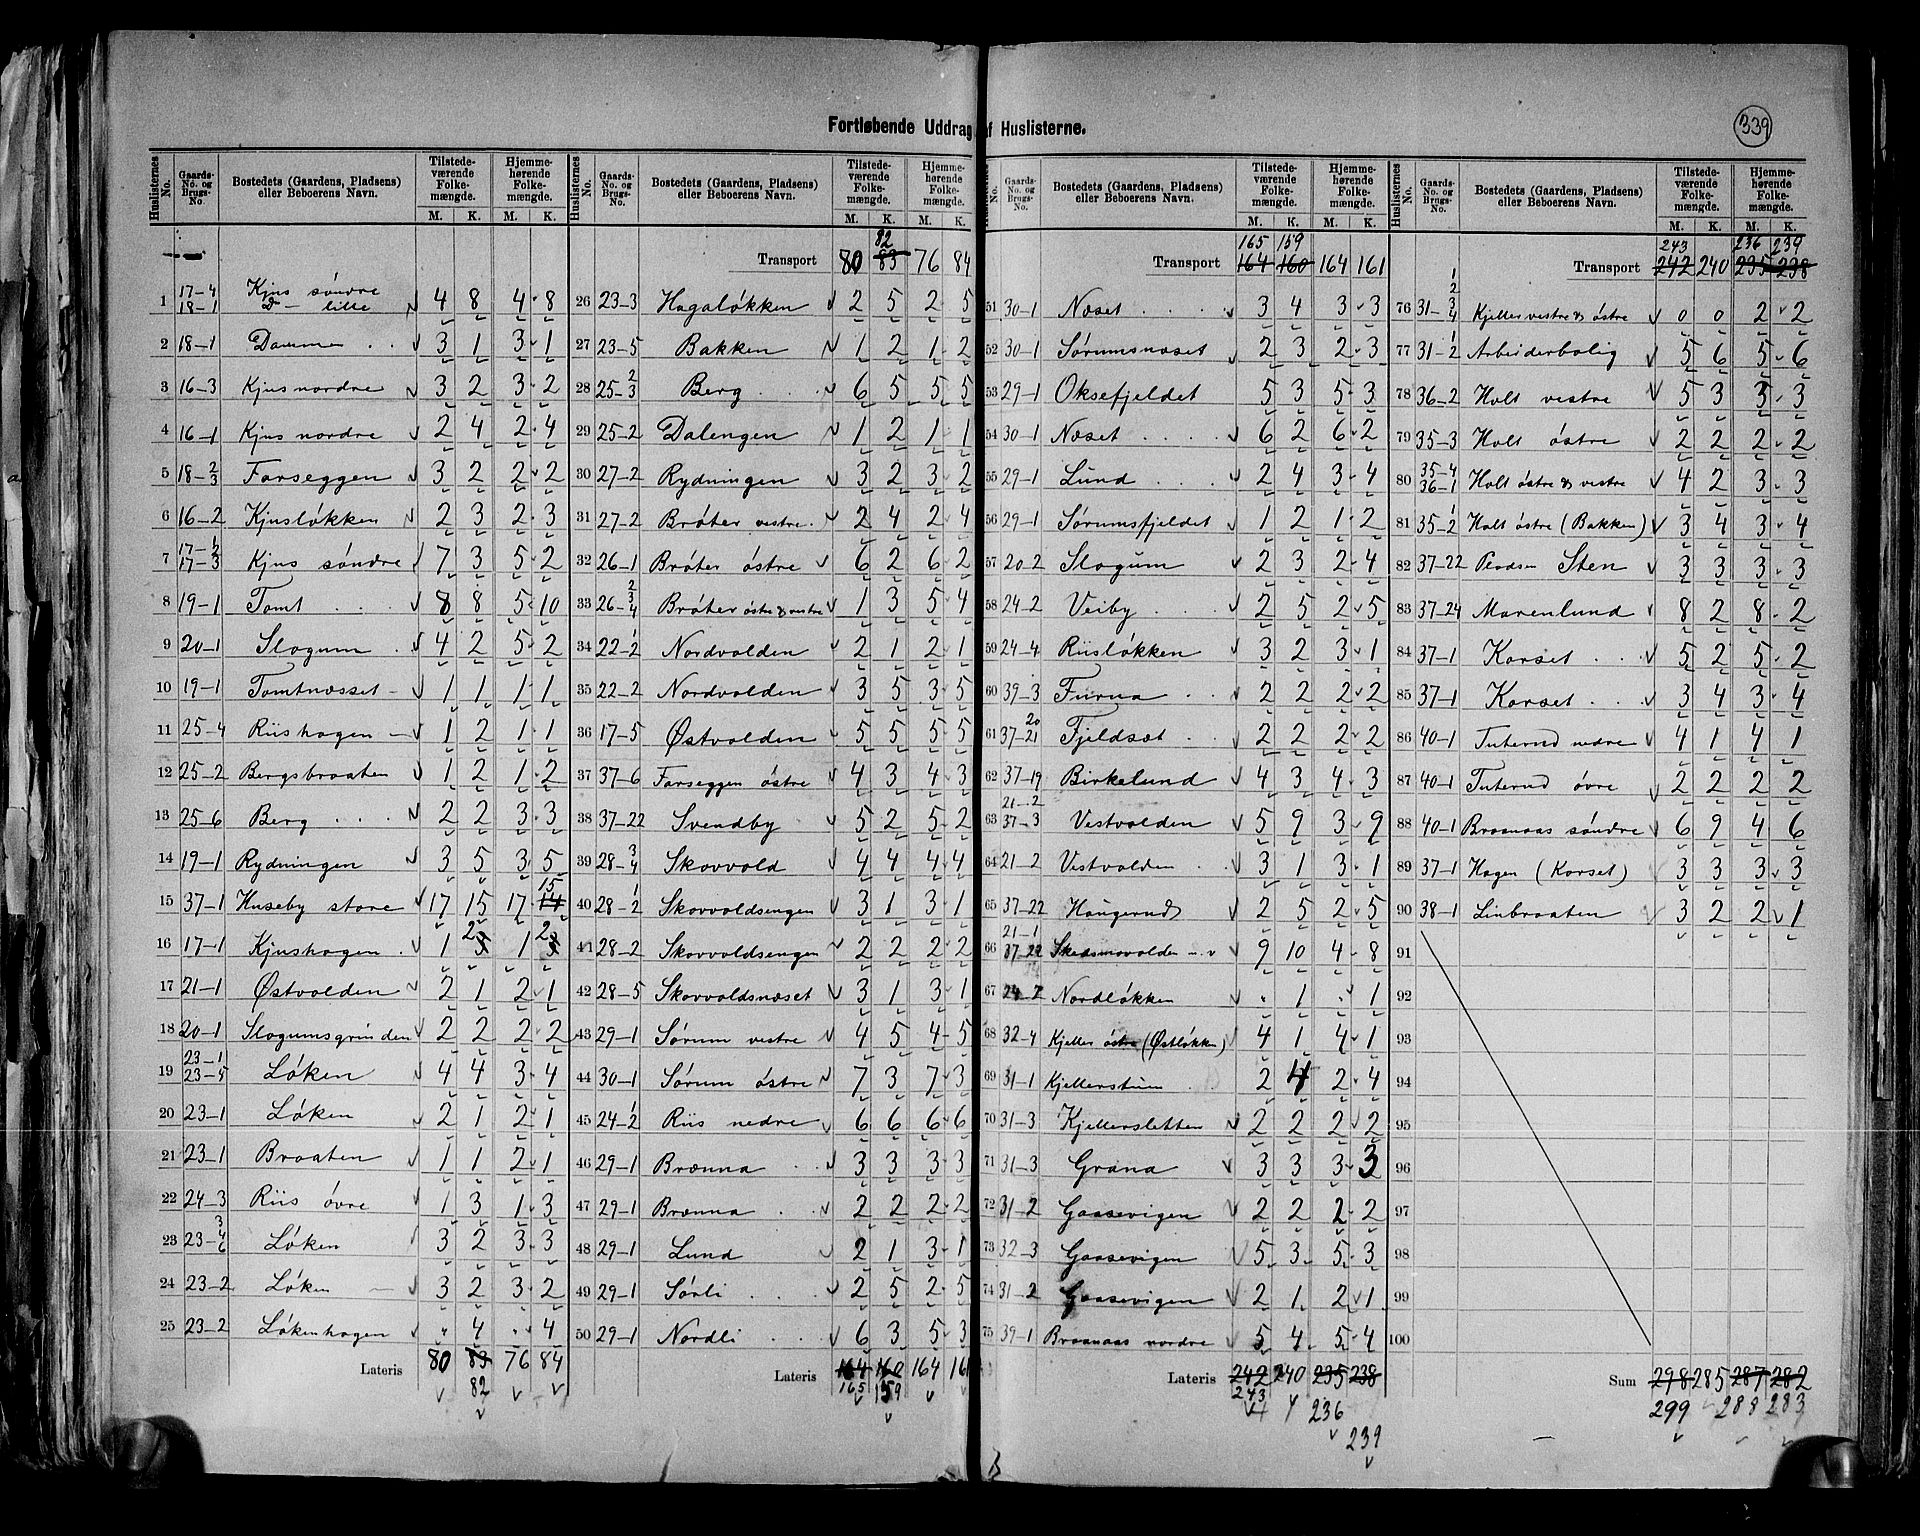 339
Fortløbende Uddrag af Huslisterne.
Huslisternes No. Gaards-No. og Brugs-No. Bostedets (Gaardens, Pladsens) eller Beboerens Navn. Tilstedeværende Folkemængde. M. K. Hjemmehørende Folkemængde. M. K.
1 17-4 18-1 Kjus søndre D— lille 4 8 4 8
2 18-1 Dammen 3 1 3 1
3 16-3 Kjus nordre 3 2 3 2
4 16-1 Kjus nordre 2 4 2 4
5 18-2/3 Farseggen 3 2 2 2
6 16-2 Kjusløkken 2 3 2 3
7 17-1/2 17-3 Kjus søndre 7 3 5 2
8 19-1 Tomt 8 8 5 10
9 20-1 Slogum 4 2 5 2
10 19-1 Tomtnæsset 1 1 1 1
11 25-4 Riishagen 1 2 1 1
12 25-2 Bergsbraaten 1 2 1 2
13 25-6 Berg 2 2 3 3
14 19-1 Rydningen 3 5 3 5
15 37-1 Huseby store 17 15 17 14 15
16 17-1 Kjushagen 1 3 2 1 3 2
17 21-1 Østvolden 2 1 2 1
18 20-1 Slogumsgrinden 2 2 2 2
19 23-1 23-5 Løken 4 4 3 4
20 23-1 Løken 2 1 2 1
21 23-1 Braaten 1 1 2 1
22 24-3 Riis øvre 1 3 1 3
23 23-3/4/6 Løken 3 2 3 3
24 23-2 Løken 3 2 3 2
25 23-2 Løkenhagen " 4 " 4
Lateris 80 83 76 84
82
Huslisternes No. Gaards-No. og Brugs-No. Bostedets (Gaardens, Pladsens) eller Beboerens Navn. Tilstedeværende Folkemængde. M. K. Hjemmehørende Folkemængde. M. K.
82
Transport 80 83 76 84
26 23-3 Hagaløkken 2 5 2 5
27 23-5 Bakken 1 2 1 2
28 25-2/3 Berg 6 5 5 5
29 25-2 Dalengen 1 2 1 1
30 27-2 Rydningen 3 2 3 2
31 27-2 Brøter vestre 2 4 2 4
32 26-1 Brøter østre 6 2 6 2
33 26-2/3/4 Brøter østre & vestre 1 3 5 4
34 22-1/2 Nordvolden 2 1 2 1
35 22-2 Nordvolden 3 5 3 5
36 17-5 Østvolden 5 5 5 5
37 37-6 Farseggen østre 4 3 4 3
38 37-22 Svendby 5 2 5 2
39 28-3/4 Skovvold 4 4 4 4
40 28-1/2 Skovvoldsengen 3 1 3 1
41 28-2 Skovvoldsengen 2 2 2 2
42 28-5 Skovvoldsnæset 3 1 3 1
43 29-1 Sørum vestre 4 5 4 5
44 30-1 Sørum østre 7 3 7 3
45 24-1/2 Riis nedre 6 6 6 6
46 29-1 Brænna 3 3 3 3
47 29-1 Brænna 2 2 2 2
48 29-1 Lund 2 1 3 1
49 29-1 Sørli 2 5 2 5
50 29-1 Nordli 6 3 5 3
Lateris 164 160 164 161
165 159
Gaards-No. og Brugs-No. Bostedets (Gaardens, Pladsens) eller Beboerens Navn. Tilstedeværende Folkemængde. M. K. Hjemmehørende Folkemængde. M. K.
165 159
Transport 164 160 164 161
51 30-1 Næset 3 4 3 3
52 30-1 Sørumsnæset 2 3 2 3
53 29-1 Oksefjeldet 5 3 5 3
54 30-1 Næset 6 2 6 2
55 29-1 Lund 2 4 3 4
56 29-1 Sørumsfjeldet 1 2 1 2
57 20-2 Slogum 2 3 2 4
58 24-2 Veiby 2 5 2 5
59 24-4 Riisløkken 3 2 3 1
60 39-3 Furua 2 2 2 2
61 37-20/21 Fjeldsæt 2 2 2 2
62 37-19 Birkelund 4 3 4 3
63 21-2 37-3 Vestvolden 5 9 3 9
64 21-2 Vestvolden 3 1 3 1
65 37-22 Haugerud 2 5 2 5
66 21-1 37-22 Skedsmovolden 9 10 4 8
67 24-2 Nordløkken " 1 " 1
68 32-4 Kjeller østre (Østløkken) 4 1 4 1
69 31-1 Kjellerstuen 2 4 2 4
70 31-3 Kjellersletten 2 2 2 2
71 31-3 Grana 3 3 3 3
72 31-2 Gaasevigen 2 2 2 2
73 32-3 Gaasevigen 5 3 5 3
74 31-2 Gaasevigen 2 1 2 1
75 39-1 Braanaas nordre 5 4 5 4
Lateris 242 240 235 238
243 236 239
Huslisternes No. Gaards-No. og Brugs-No. Bostedets (Gaardens, Pladsens) eller Beboerens Navn. Tilstedeværende Folkemængde. M. K. Hjemmehørende Folkemængde. M. K.
243 236 239
Transport 242 240 235 238
76 31-1/2/3/4 Kjeller vestre & østre 0 0 2 2
77 31-1/2 Arbeiderbolig 5 6 5 6
78 36-2 Holt vestre 5 3 3 3
79 35-3 Holt østre 2 2 2 2
80 35-4 36-1 Holt østre & vestre 4 2 3 3
81 35-1/2 Holt østre (Bakken) 3 4 3 4
82 37-22 Pladsen Sten 3 3 3 3
83 37-24 Marenlund 8 2 8 2
84 37-1 Korset 5 2 5 2
85 37-1 Korset 3 4 3 4
86 40-1 Tuterud nedre 4 1 4 1
87 40-1 Tuterud øvre 2 2 2 2
88 40-1 Braanaas søndre 6 9 4 6
89 37-1 Hagen (Korset) 3 3 3 3
90 38-1 Linbraaten 3 2 2 1
91
92
93
94
95
96
97
98
99
100
Sum 298 285 287 282
299 288 283